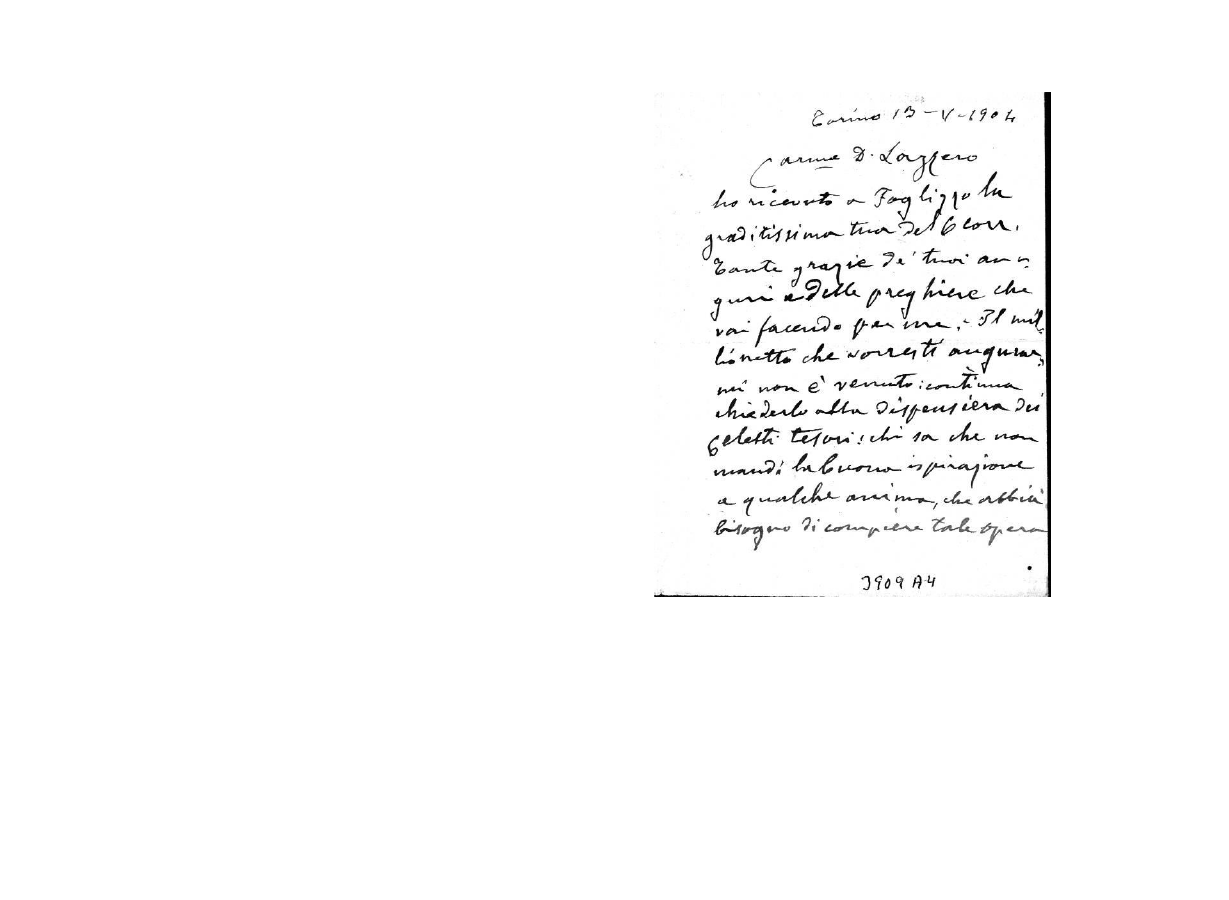 Torino 13-V-1904
Carme D. Lazzero
ho ricevuto a Foglizzo la
graditissima tua del 6 corr.
Tante grazie de' tuoi au-
guri e delle preghiere che
vai facendo per me. - Il mil-
lionetto che vorresti augurar-
mi non è venuto: continua
chiederlo alla dispensiera dei
celesti tesori: chi sa che non
mandi la buona ispirazione
a qualche anima, che abbia
bisogno di compiere tale opera
3909 A4